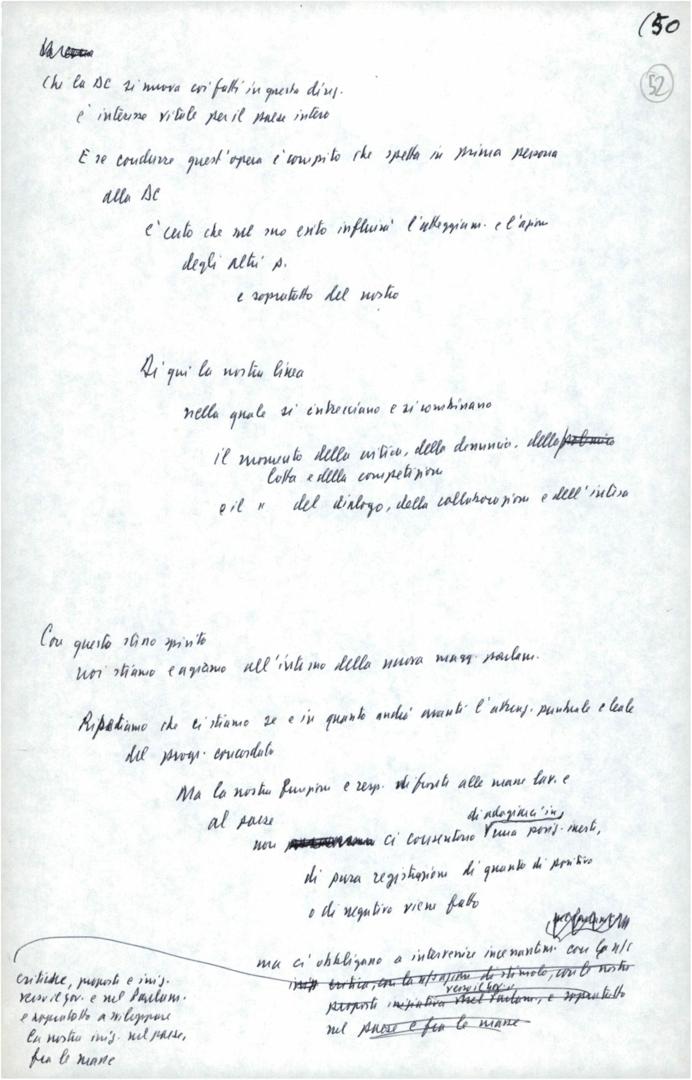 (50
52
Che la DC si muova coi fatti in questa direz.
è interesse vitale per il paese intero
E se condurre quest'opera è compito che spetta in prima persona
alla DC
è certo che nel suo esito influirà l'atteggiam. e l'azione
degli altri p.
e sopratutto del nostro
Di qui la nostra linea
nella quale si intrecciano e si combinano
il momento della critica, della denuncia, della polemica
lotta e della competizione
e il " del dialogo, della collaborazione e dell'intesa
Con questo stesso spirito
noi stiamo e agiamo all'interno della nuova magg. parlam.
Ripetiamo che ci stiamo se e in quanto andrà avanti l'attuaz. puntuale e leale
del progr. concordato
Ma la nostra funzione e resp. di fronte alle masse lav. e
al paese
di adagiarci in
non ci consentono una posiz. inerte,
di pura registrazione di quanto di positivo
o di negativo viene fatto
ma ci obbligano a intervenire incessantem. con le n/s
critica, con la n/s azione di stimolo, con le nostre
verso il gov. e
proposte iniziativa nel Parlam., e sopratutto
nel paese e fra le masse
critiche, proposte e iniz.
verso il gov. e nel Parlam.
e sopratutto a sviluppare
la nostra iniz. nel paese,
fra le masse